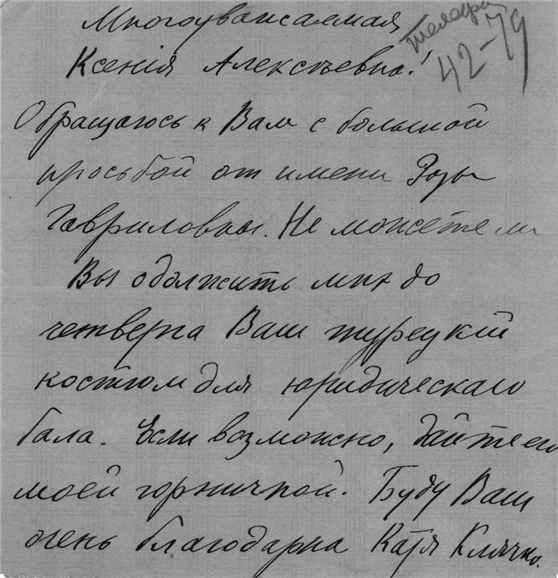 Многоуважаемая
телефон
42-79
Ксенія Алексѣевна!
Обращаюсь к Вам с большой
просьбой от имени Розы
Гавриловны. Не можете ли
Вы одолжить мнѣ до
четверга Ваш турецкій
костюм для юридическаго
бала. Если возможно, дайте его
моей горничной. Буду Вам
очень благодарна Катя Клячко.